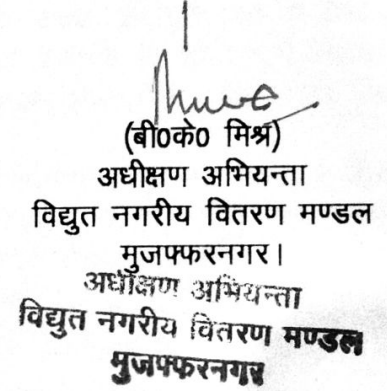 (बी0के0 मिश्र)
अधीक्षण अभियन्ता
विद्युत नगरीय वितरण मण्डल
मुजफ्फरनगर।
अधीक्षण अभियन्ता
विद्युत नगरीय वितरण मण्डल
मुजफ्फरनगर